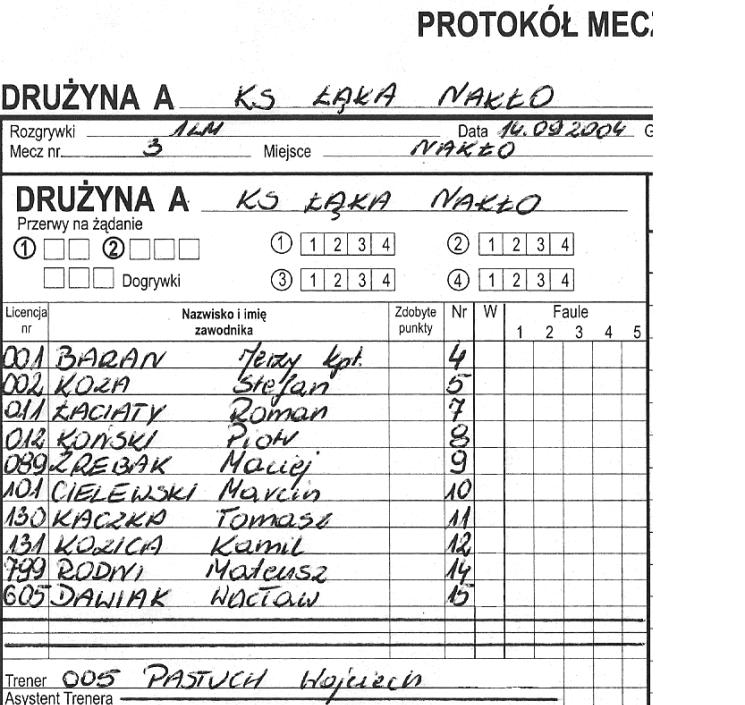 PROTOKÓŁ MEC
DRUŻYNA A KS ŁĄKA NAKŁO
Rozgrywki 1LM Data 14.09.2004 G
Mecz nr. 3 Miejsce NAKŁO
DRUŻYNA A KS ŁĄKA NAKŁO
Przerwy na żądanie
1 2 1 1 2 3 4 2 1 2 3 4
Dogrywki 3 1 2 3 4 4 1 2 3 4
Licencja nr Nazwisko i imię zawodnika Zdobyte punkty Nr W Faule
1 2 3 4 5
001 BARAN Jerzy kpt. 4
002 KOZA Stefan 5
011 ŁACIATY Roman 7
012 KOŃSKI Piotr 8
089 ŹREBAK Maciej 9
101 CIELEWSKI Marcin 10
130 KACZKA Tomasz 11
131 KOZICA Kamil 12
799 RODNI Mateusz 14
605 DAWIAK Wacław 15
Trener 005 PASTUCH Wojciech
Asystent Trenera